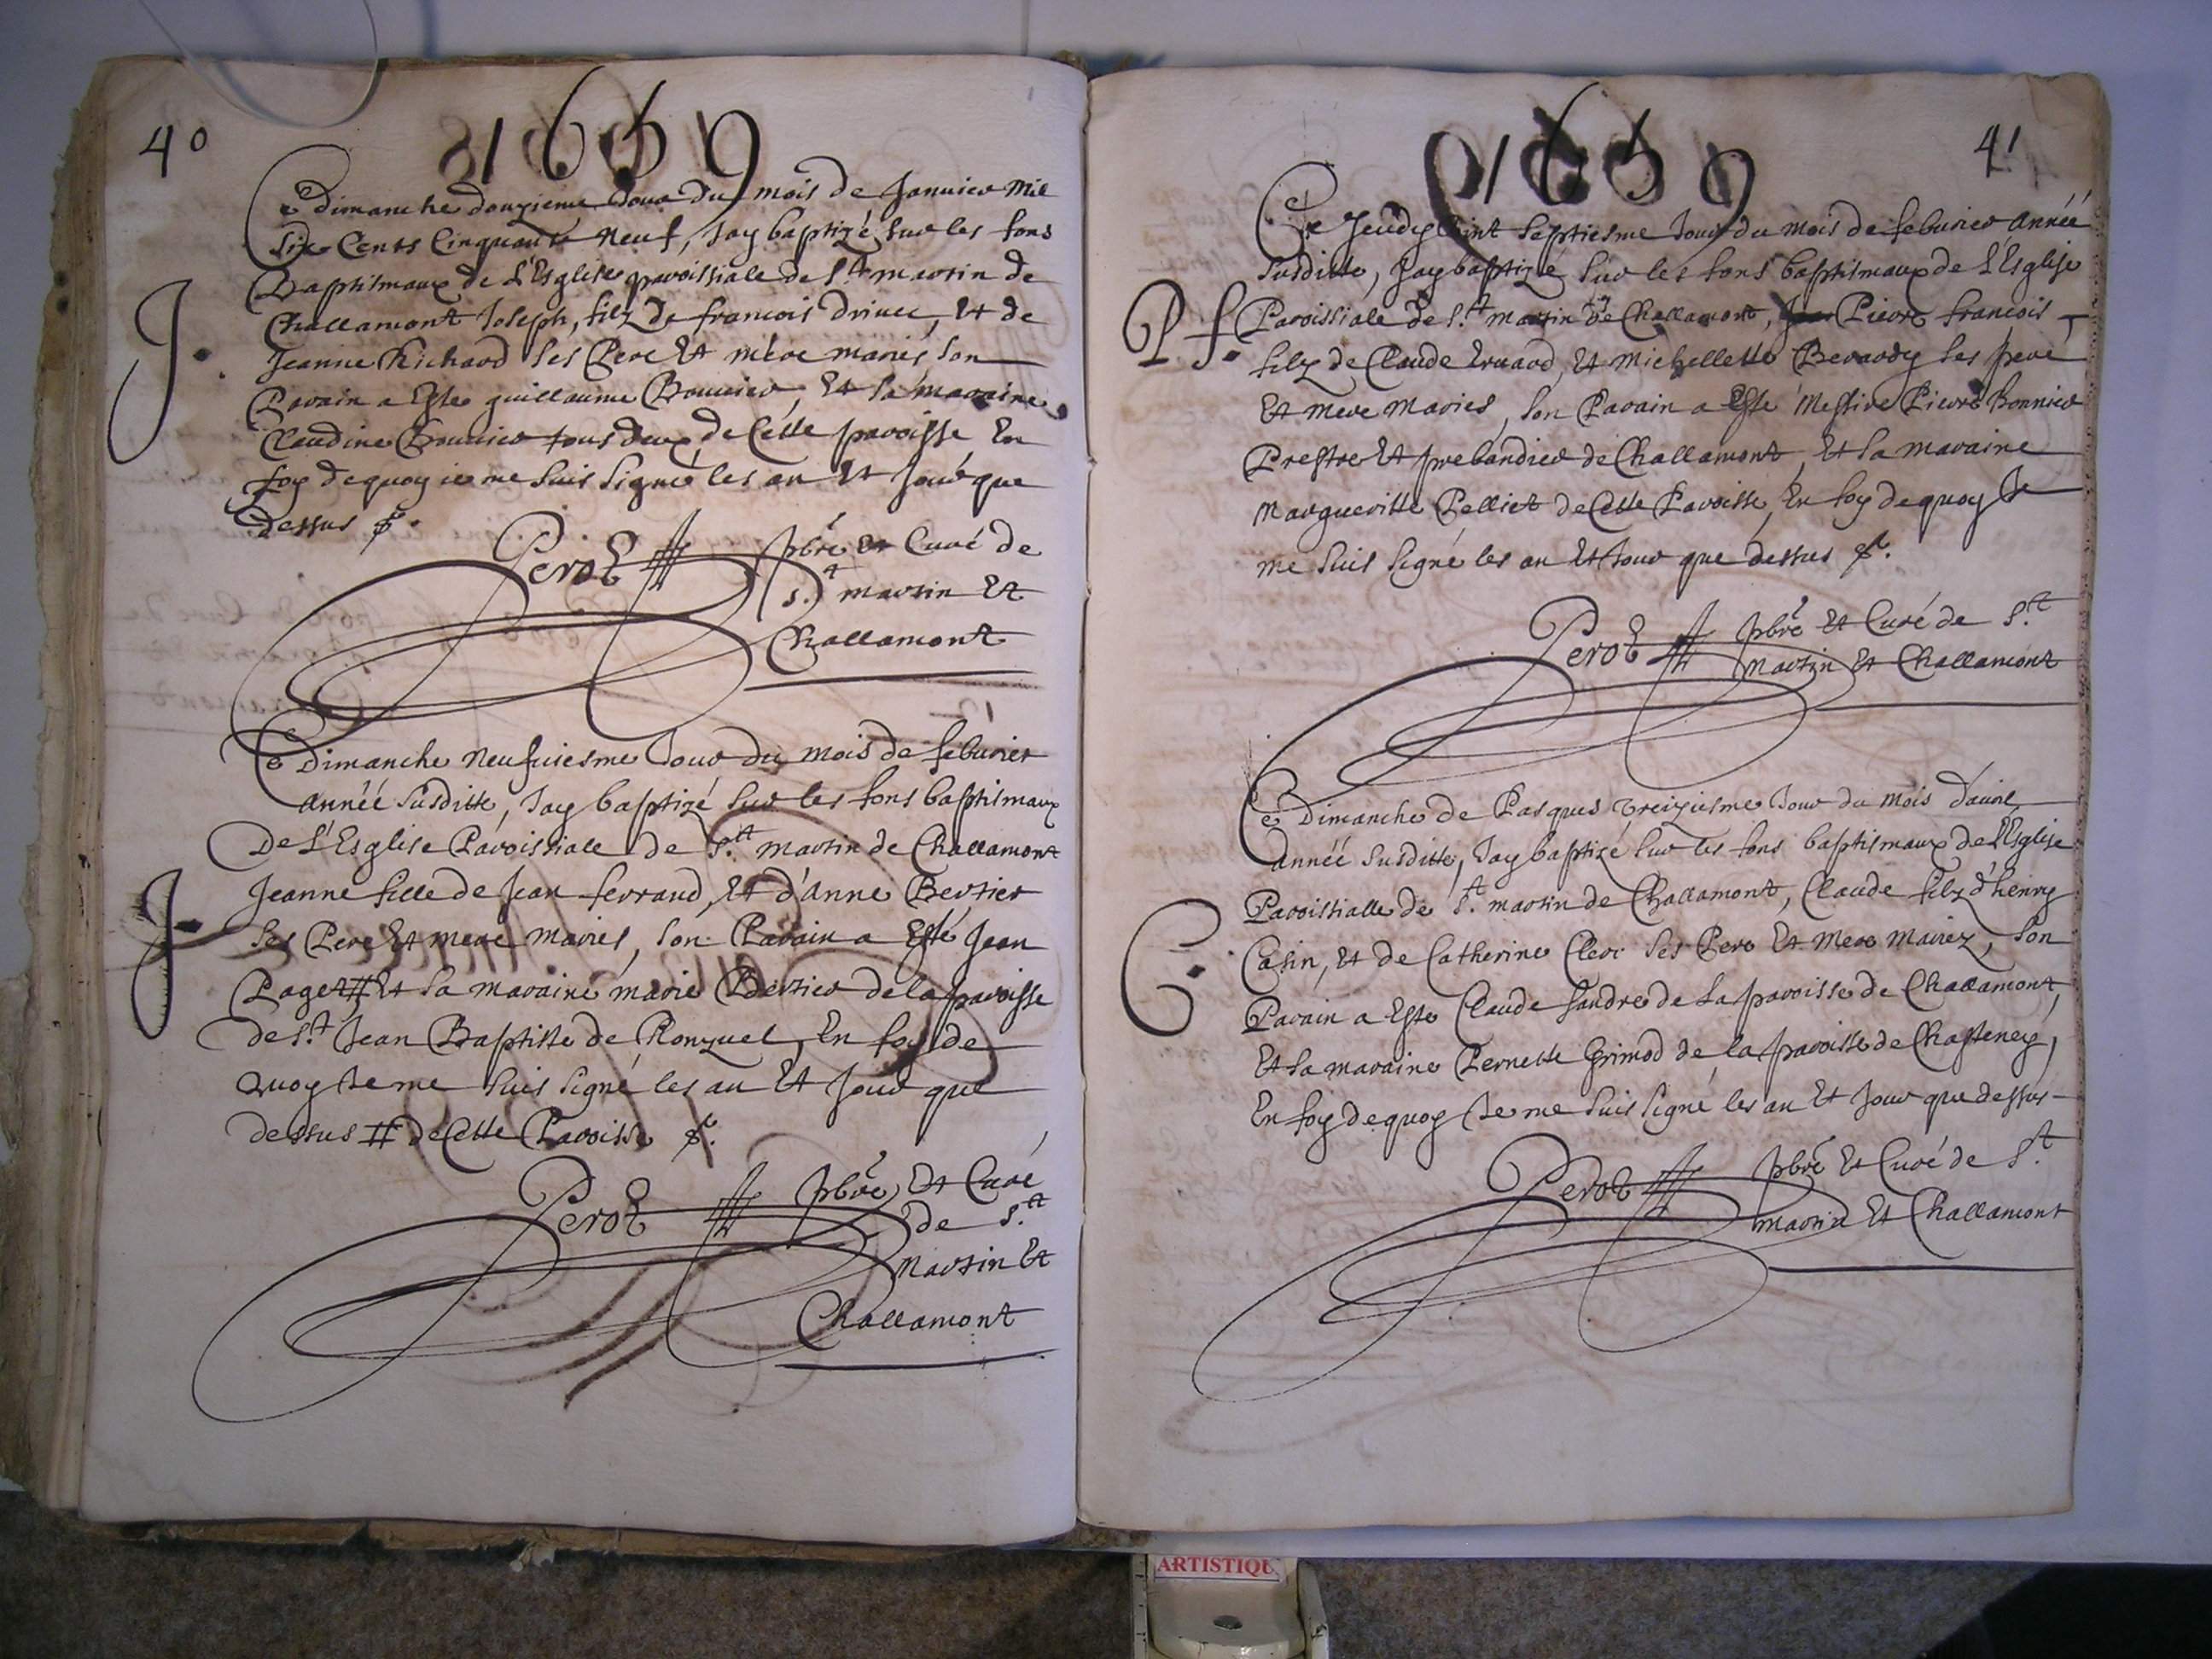 40
1659
Ce dimanche douzieme Jour du mois de Januier mil
Six Cents Cinquante Neuf, Jay baptizé sur les fons
Baptismaux de L'Esglise paroissiale de S.t martin de
J.
Challamont Joseph, filz de francois driuet, Et de
Jeanne Richard ses Pere Et mere mariés son
Parain a Este guillaume Bouuier, Et sa maraine
Claudine Bouuier tous deux de Cette paroisse En
foy dequoy ie me suis signé les an Et Jour que
dessus
Perot pbre Et Curé de
S.t martin Et
Challamont
Ce Dimanche Neufuiesme Jour du mois de feburier
année susditte, Jay baptizé sur les fons baptismaux
De L'Esglise Paroissiale de S.tt martin de Challamont
J.
Jeanne fille de Jean ferrand, Et d'Anne Bertier
ses Pere Et mere mariés, son Parain a Esté Jean
Paget # Et sa maraine marie Bertier de la paroisse
de S.t Jean Baptiste de Ronzuel, En foy de
quoy Je me suis signé les an Et Jour que
dessus # de Cette Paroisse
Perot pbre Et Curé
de S.tt
Martin Et
Challamont
1659
41
Ce Jeudy Vint septiesme Jour du mois de feburier année
susditte, Jay baptizé sur les fons baptismaux de L'Esglise
P. f.
Paroissiale de S.t martin de Challamont, Pierre francois
filz de Claude Eruard, Et Michellette Berardy ses pere
Et mere mariés, son Parain a Esté Messire Pierre Bonnier
Prestre Et prebandier de Challamont, Et sa maraine
Margueritte Pelliet de Cette Paroisse, En foy dequoy Je
me suis signé les an Et Jour que dessus
Perot pbre Et Curé de S.tt
Martin Et Challamont
Ce Dimanche de Pasques Treiziesme Jour du mois d'auril
année susditte, Jay baptizé sur les fons baptismaux de L'Esglise
Paroissialle de S.t martin de Challamont, Claude filz d'henry
C.
Casin, Et de Catherine Clerc ses Pere Et Mere mariez, son
Parain a Esté Claude sandre de La paroisse de Challamont,
Et sa maraine Pernette Grimod de la paroisse de Chasteney,
En foy dequoy Je me suis signé les an Et Jour que dessus
Perot pbre Et Curé de S.tt
martin Et Challamont
ARTISTIQUE